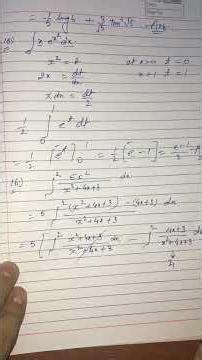 = 1/5 log 6 + 3/√5 tan⁻¹ √5
(15) ∫ x e^{x²} dx
x² = t at x=0 t=0
2x = dt/dx x=1 t=1
x dx = dt/2
1/2 ∫₀¹ e^t dt
= 1/2 [e^t]₀¹ = 1/2 [e - 1] = e-1/2
16) ∫₁² 5x²/x²+4x+3 dx
= 5 ∫² (x²+4x+3) - (4x+3)/x²+4x+3 dx
= 5 [∫² x²+4x+3/x²+4x+3 dx - ∫² 4x+3/x²+4x+3 dx